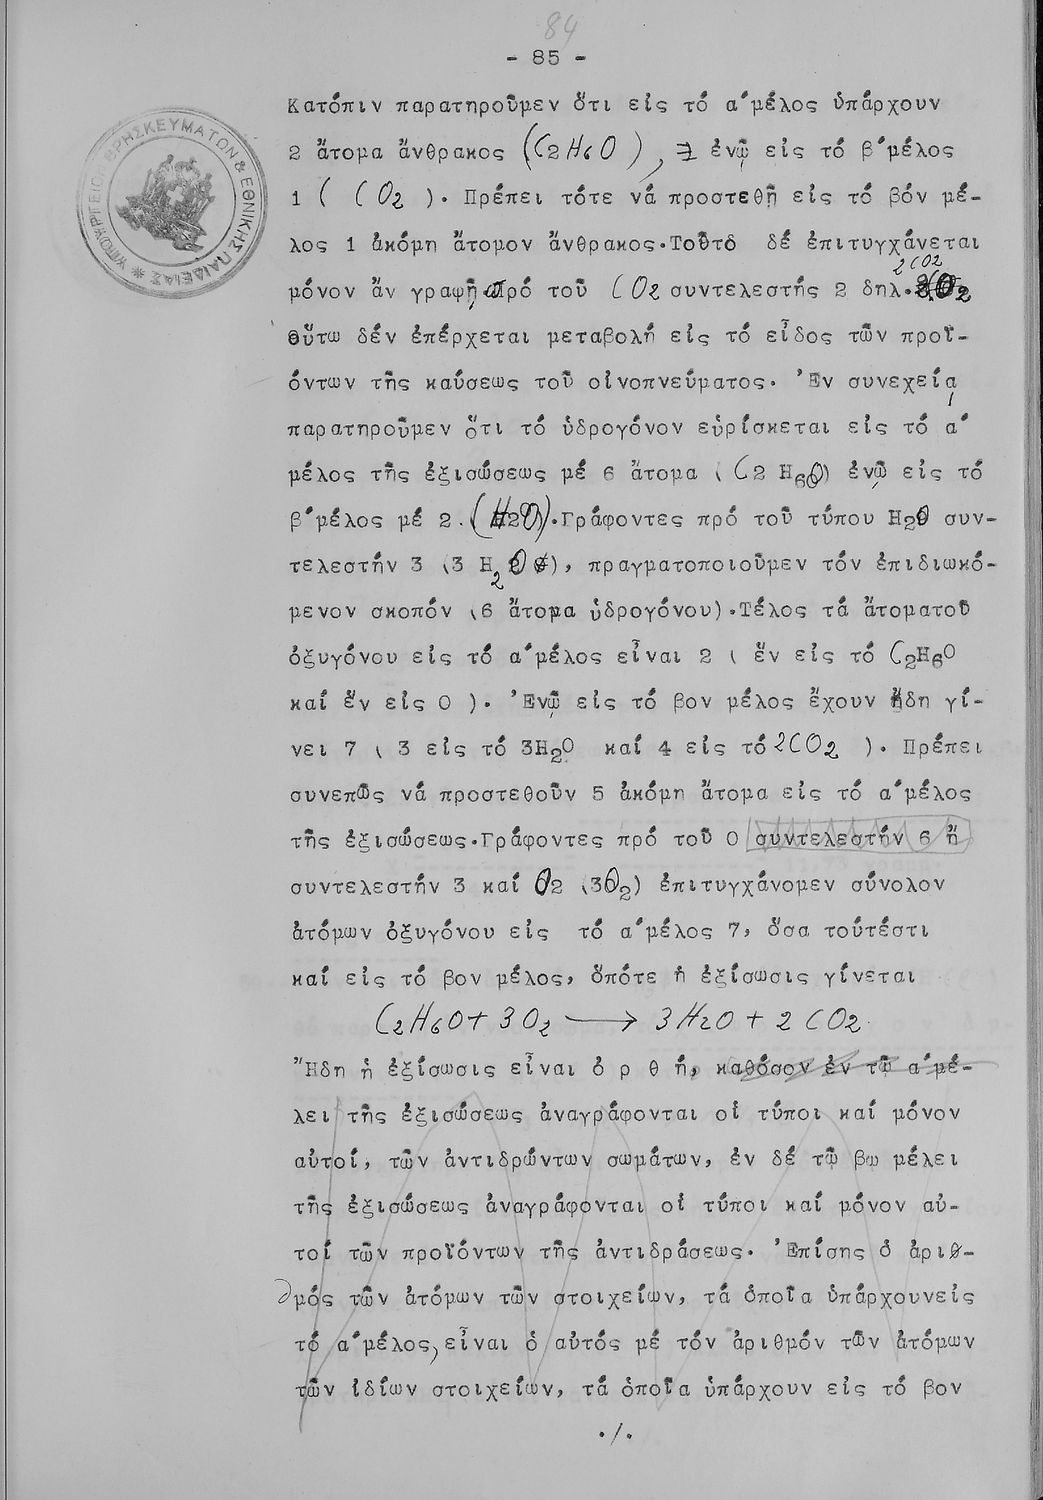 84
- 85 -
Κατόπιν παρατηροῦμεν ὅτι εἰς τό α΄μέλος ὑπάρχουν
2 ἄτομα ἄνθρακος (C2H6O), ἐνῷ εἰς τό β΄μέλος
1 ( CO2 ). Πρέπει τότε νά προστεθῇ εἰς τό βόν μέ-
λος 1 ἀκόμη ἄτομον ἄνθρακος.Τοῦτό δέ ἐπιτυγχάνεται
2CO2
μόνον ἄν γραφῇ πρό τοῦ CO2 συντελεστής 2 δηλ.
Οὕτω δέν ἐπέρχεται μεταβολή εἰς τό εἶδος τῶν προϊ-
όντων τῆς καύσεως τοῦ οἰνοπνεύματος. Ἐν συνεχείᾳ
παρατηροῦμεν ὅτι τό ὑδρογόνον εὑρίσκεται εἰς τό α΄
μέλος τῆς ἐξισώσεως μέ 6 ἄτομα (C2 H6O) ἐνῷ εἰς τό
β΄μέλος μέ 2.(H2O).Γράφοντες πρό τοῦ τύπου H2O συν-
τελεστήν 3 (3 H2O), πραγματοποιοῦμεν τόν ἐπιδιωκό-
μενον σκοπόν (6 ἄτομα ὑδρογόνου).Τέλος τά ἄτοματοῦ
ὀξυγόνου εἰς τό α΄μέλος εἶναι 2 ( ἕν εἰς τό C2H6O
καί ἕν εἰς O ). Ἐνῷ εἰς τό βον μέλος ἔχουν ἤδη γί-
νει 7 ( 3 εἰς τό 3H2O καί 4 εἰς τό 2CO2 ). Πρέπει
συνεπῶς νά προστεθοῦν 5 ἀκόμη ἄτομα εἰς τό α΄μέλος
τῆς ἐξισώσεως.Γράφοντες πρό τοῦ O συντελεστήν 6 ἤ
συντελεστήν 3 καί O2 (3O2) ἐπιτυγχάνομεν σύνολον
ἀτόμων ὀξυγόνου εἰς τό α΄μέλος 7, ὅσα τούτέστι
καί εἰς τό βον μέλος, ὁπότε ἡ ἐξίσωσις γίνεται
C2H6O + 3O2 → 3H2O + 2CO2.
Ἤδη ἡ ἐξίσωσις εἶναι ὀ ρ θ ή, καθόσον ἐν τῷ α΄μέ-
λει τῆς ἐξισώσεως ἀναγράφονται οἱ τύποι καί μόνον
αὐτοί, τῶν ἀντιδρώντων σωμάτων, ἐν δέ τῷ βῳ μέλει
τῆς ἐξισώσεως ἀναγράφονται οἱ τύποι καί μόνον αὐ-
τοί τῶν προϊόντων τῆς ἀντιδράσεως. Ἐπίσης ὁ ἀριθ-
μός τῶν ἀτόμων τῶν στοιχείων, τά ὁποῖα ὑπάρχουνεἰς
τό α΄μέλος, εἶναι ὁ αὐτός μέ τόν ἀριθμόν τῶν ἀτόμων
τῶν ἰδίων στοιχείων, τά ὁποῖα ὑπάρχουν εἰς τό βον
./.
ΥΠΟΥΡΓΕΙΟΝ ΘΡΗΣΚΕΥΜΑΤΩΝ & ΕΘΝΙΚΗΣ ΠΑΙΔΕΙΑΣ